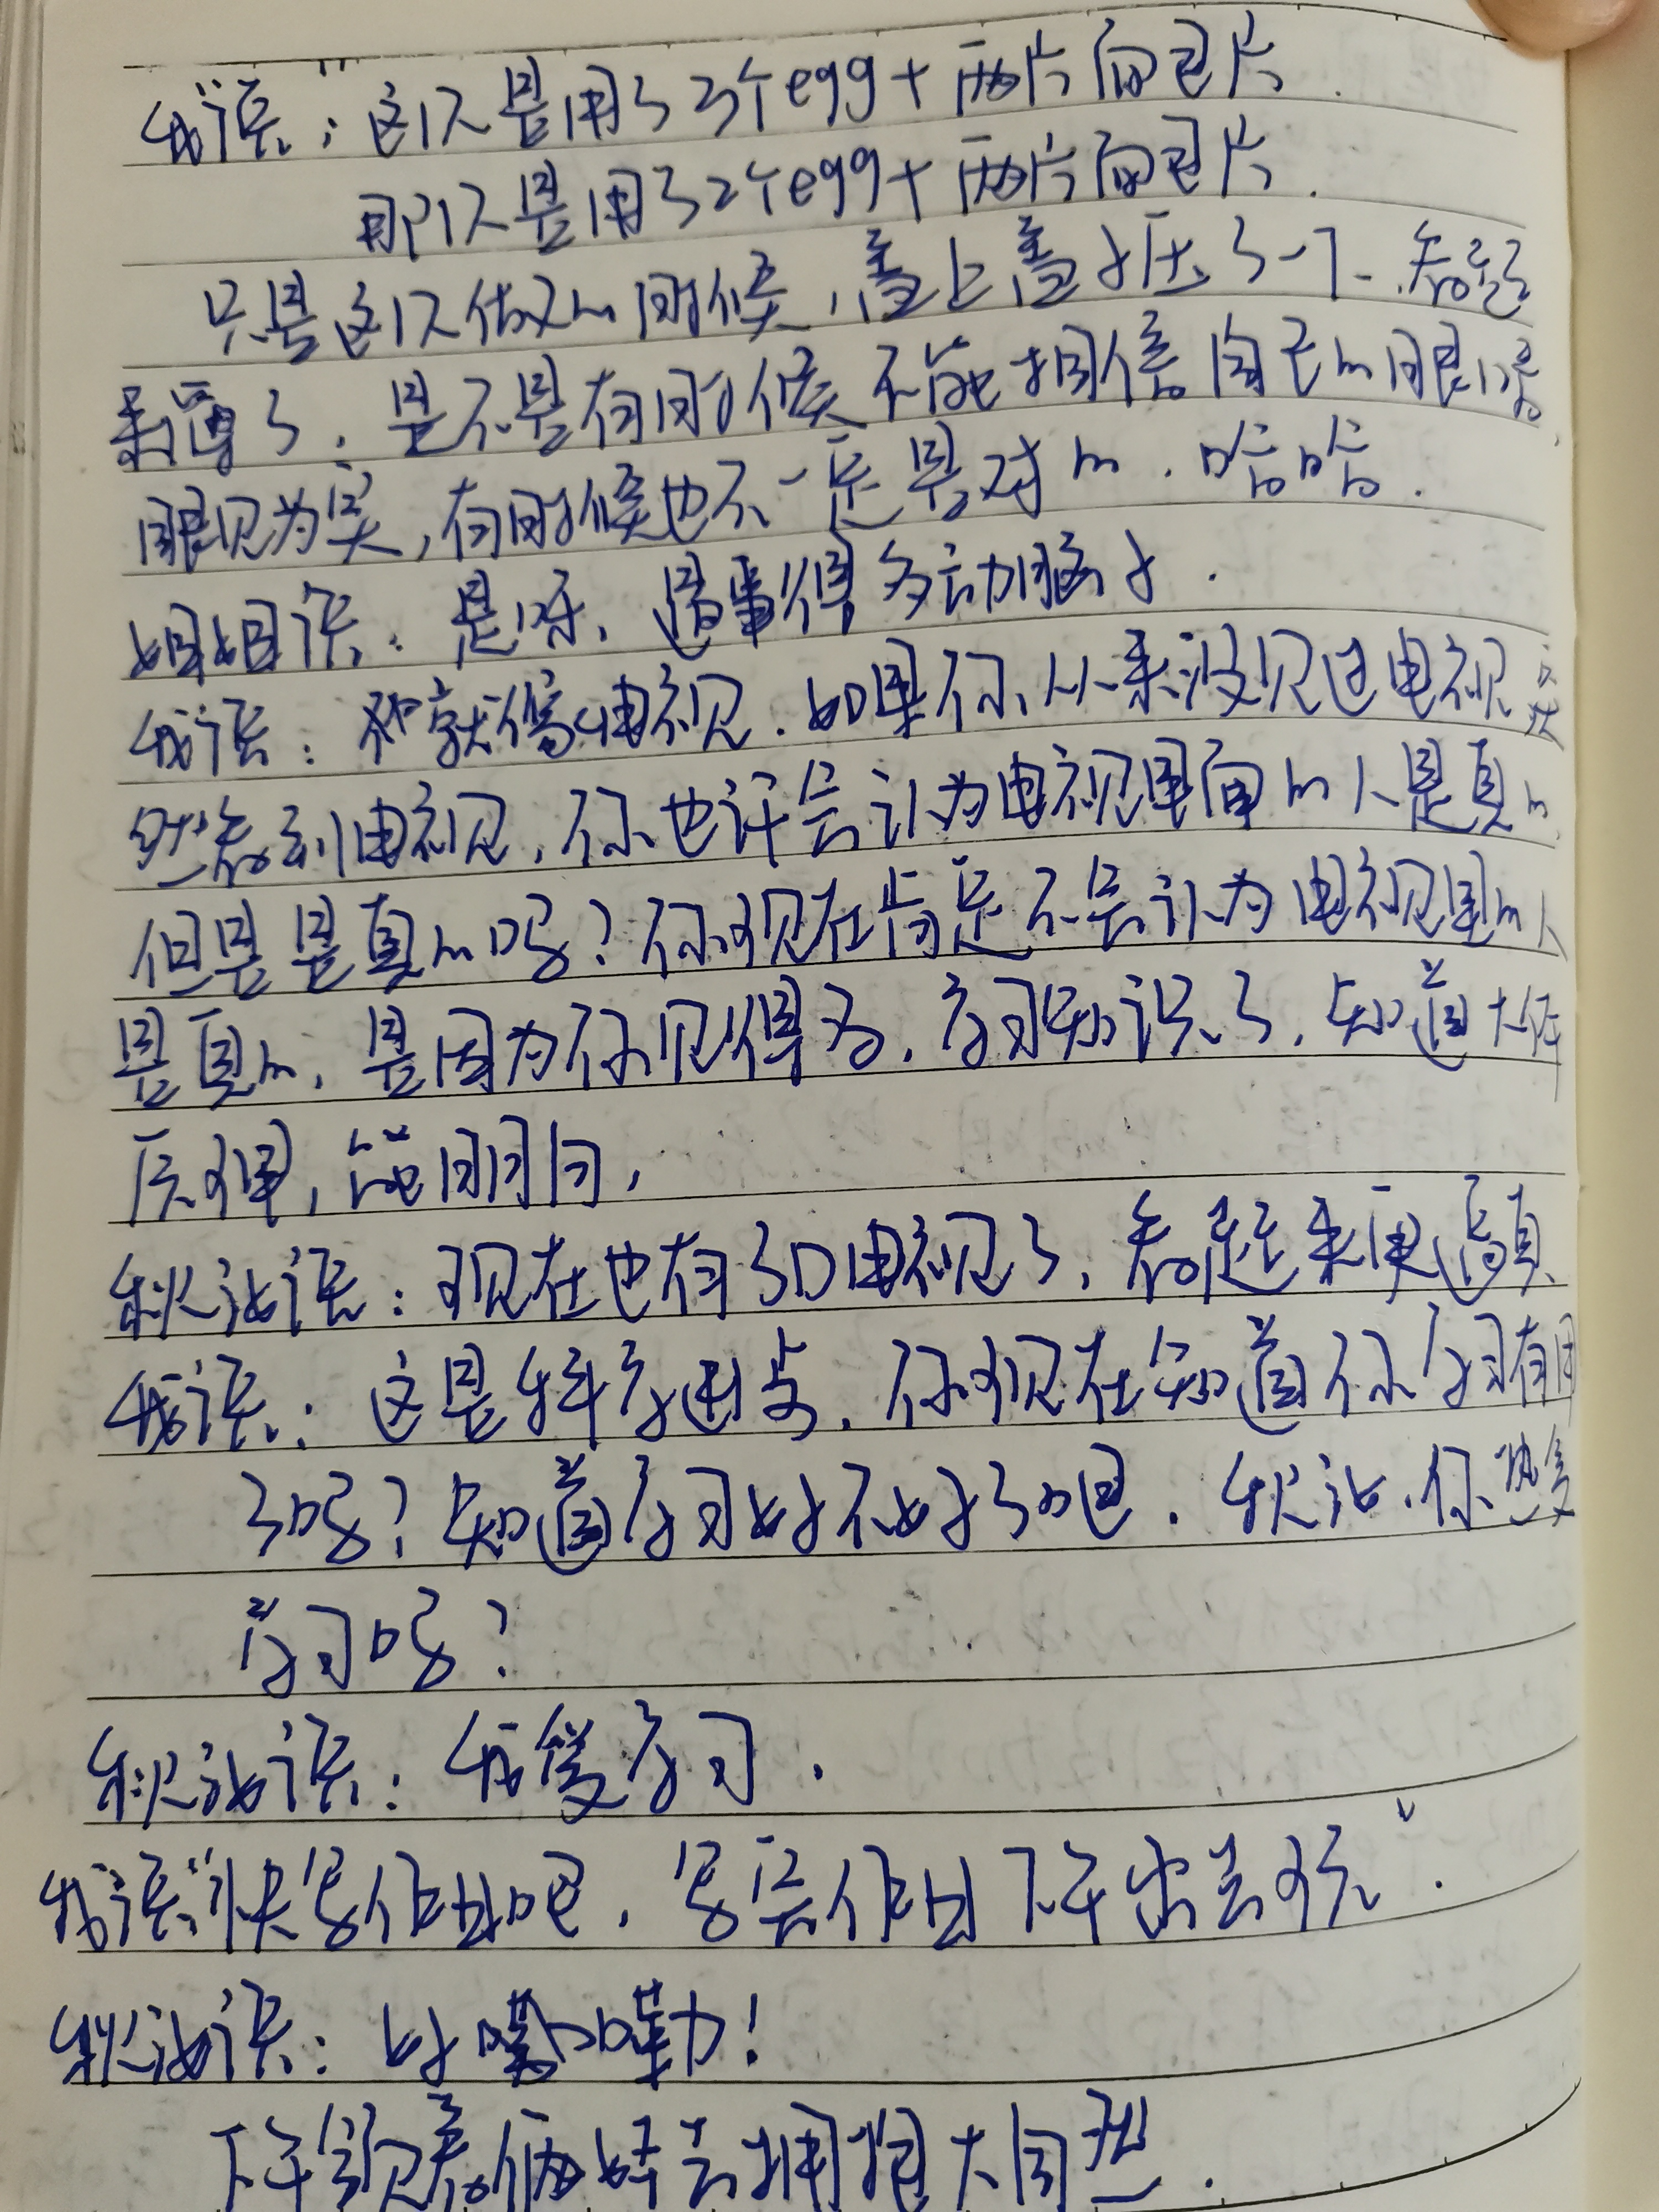 我说："这次是用了3个egg+两片面包片.
那次是用了2个egg+两片面包片.
只是这次做的时候,盖上盖子压了一下.看起
来薄了.是不是有时候不能相信自己的眼睛,
眼见为实,有时候也不一定是对的.哈哈.
姐姐说:是呀,遇事得多动脑子.
我说:就像电视.如果你从来没见过电视,突
然看到电视,你也许会认为电视里面的人是真的,
但是是真的吗?你现在肯定不会认为电视里的人
是真的,是因为你见得多,学习知识了,知道大体
原理,能明白,
秋汝说:现在也有3D电视了,看起来更逼真
我说:这是科学进步,你现在知道你学习有用
了吗?知道学习好不好了吧.秋汝,你热爱
学习吗?
秋汝说:我爱学习.
我说:"快写作业吧,写完作业下午出去玩".
秋汝说:好嘞!
下午领着俩娃去拥抱大自然.